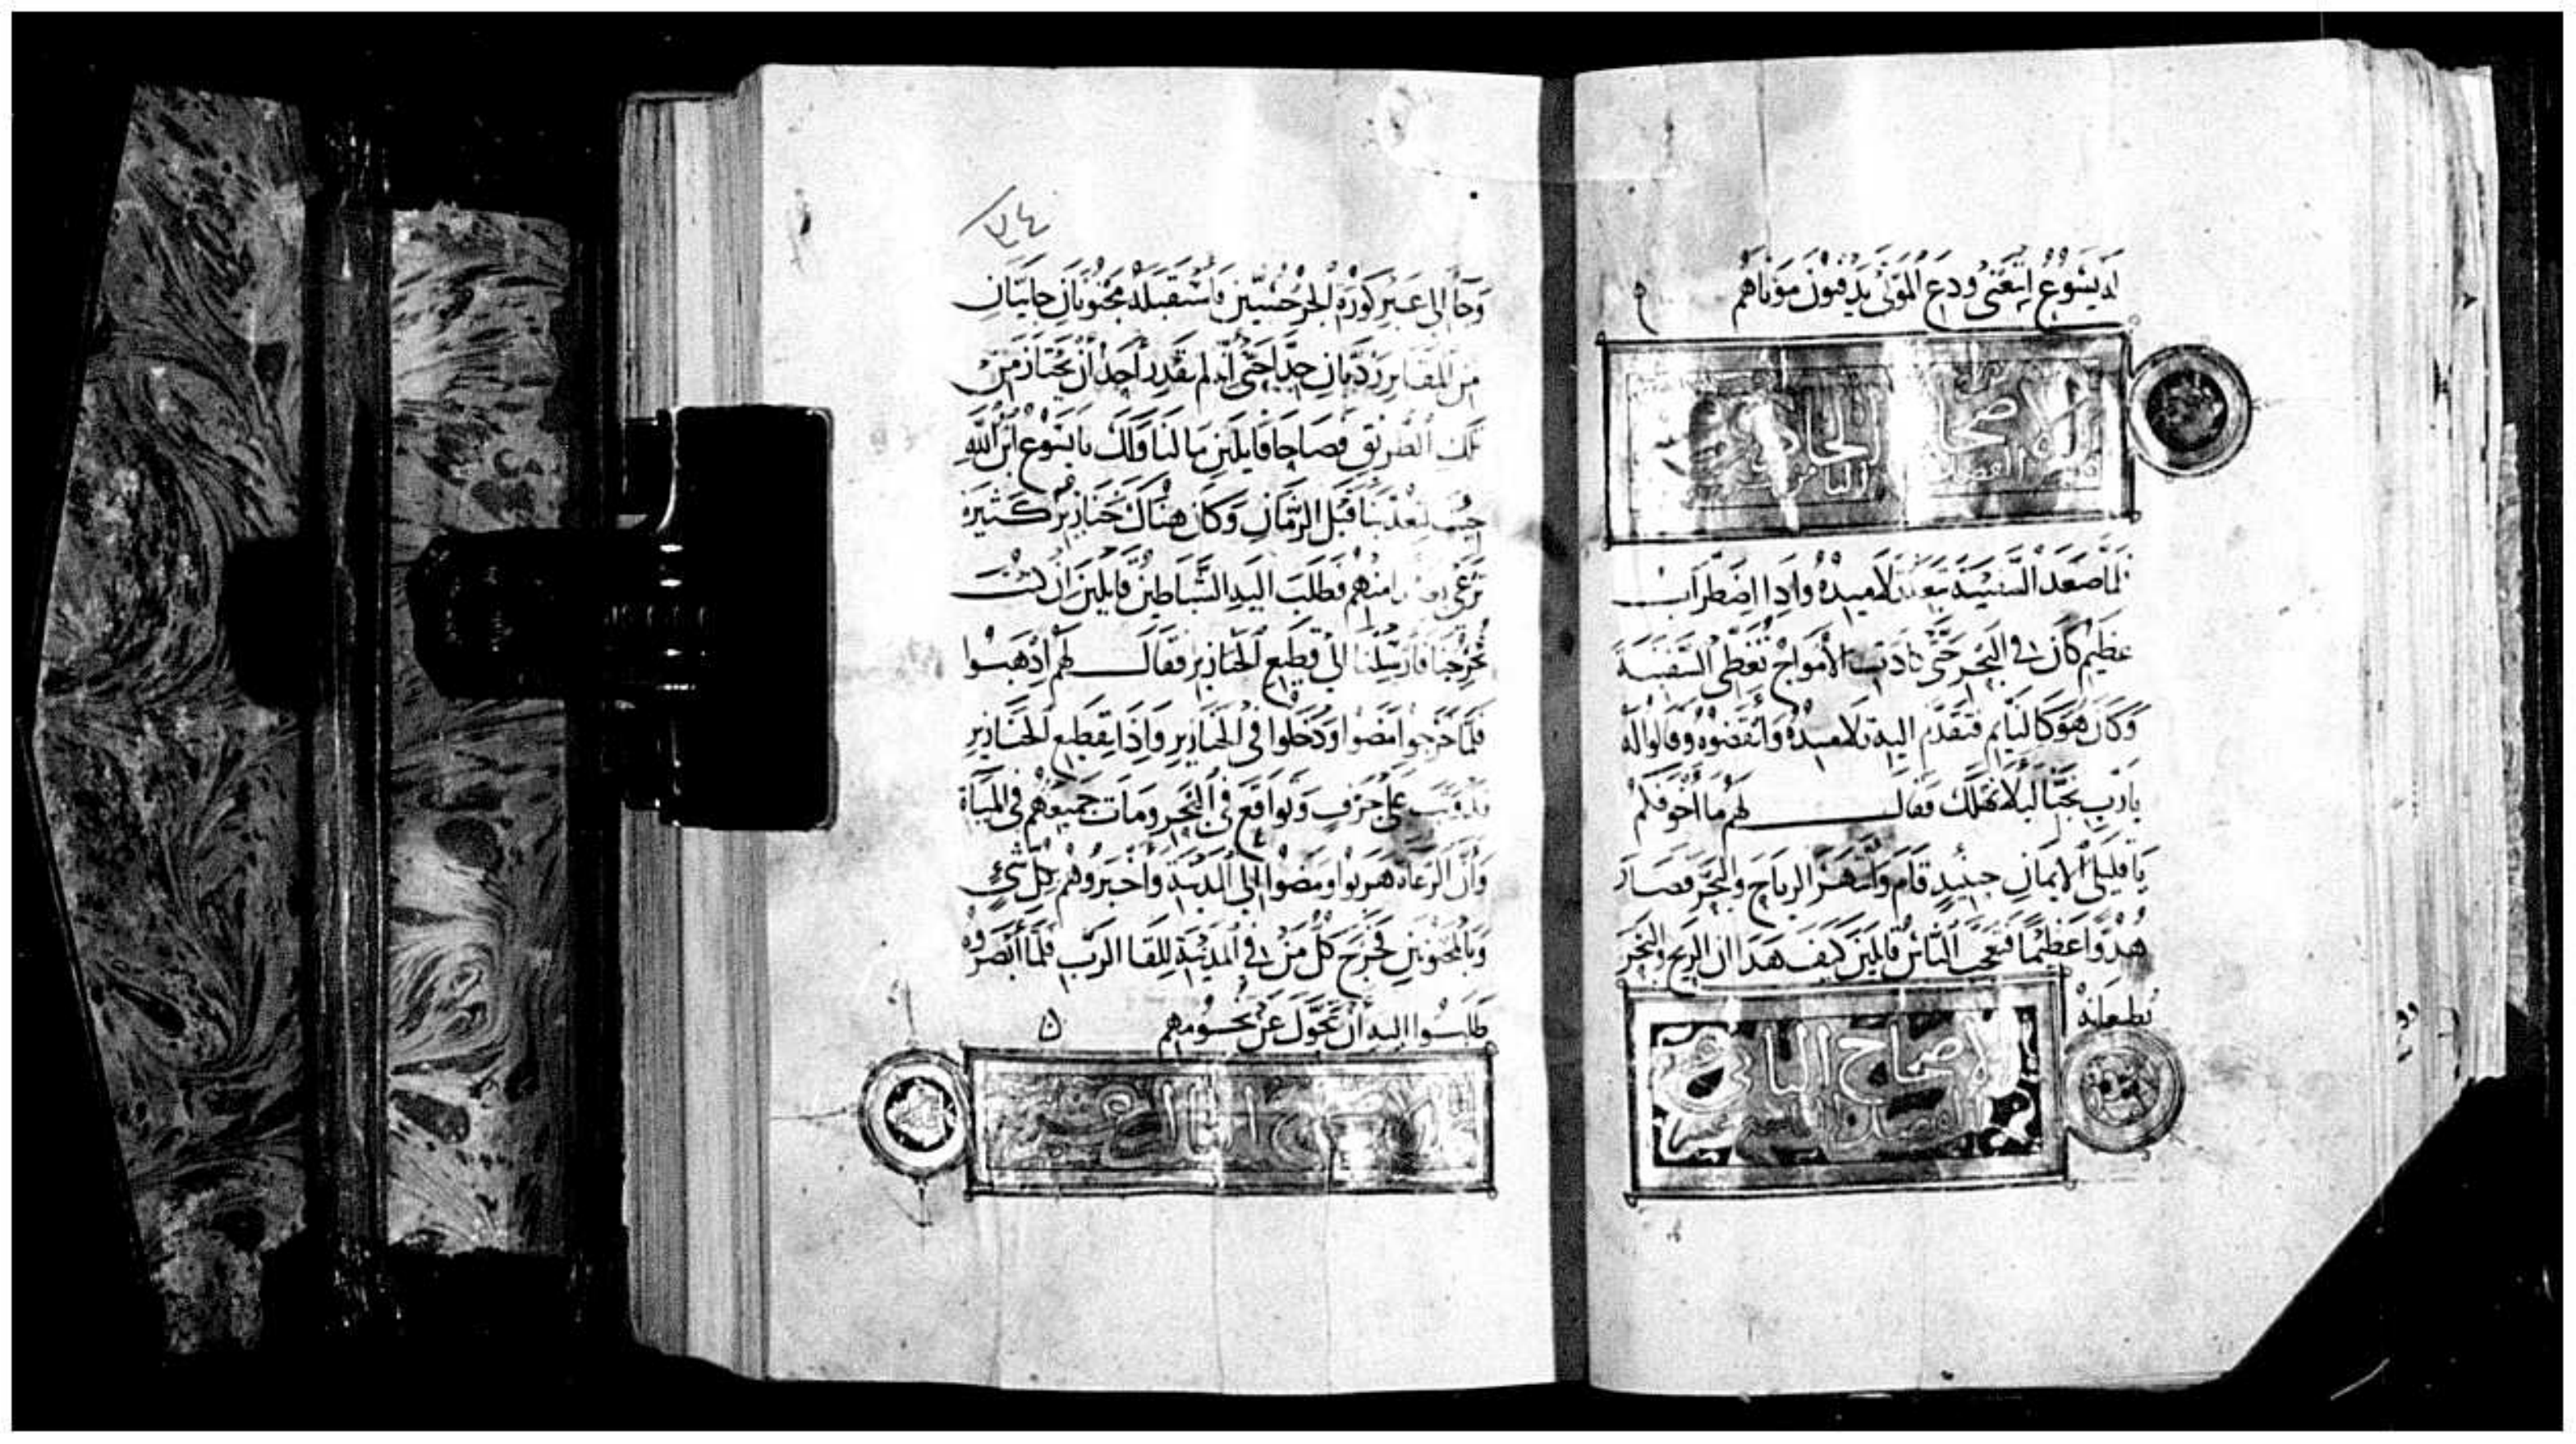 له يسوع اتبعني ودع الموتى يدفنون موتاهم
الاصحاح الحادي عشر
فلما صعد السفينة تبعته تلاميذه واذا اضطراب
عظيم كان في البحر حتى كادت الأمواج تغطي السفينة
وكان هو كالنايم فتقدم اليه تلاميذه وأيقضوه وقالوا له
يا رب نجنا ليلا نهلك فقال لهم ما اخوفكم
يا قليلي الايمان حينيذ قام وانتهر الرياح والبحر فصار
هدوا عظيما فتعجب الناس قايلين كيف هذا ان الريح والبحر
تطيعانه
الاصحاح الثاني عشر
٧٤
وجا الى عبر كورة الجرجسيين فاستقبله مجنونان جاييان
من المقابر رديان جدا حتى أنه لم يقدر أحد أن يجتاز من
تلك الطريق فصاحا قايلين ما لنا ولك يا يسوع ابن الله
جيت تعذبنا قبل الزمان وكان هناك خنازير كثيرة
ترعى منهم فطلب اليه الشياطين قايلين ان كنت
تخرجنا فارسلنا الى قطيع الخنازير فقال لهم اذهبوا
فلما خرجوا مضوا ودخلوا في الخنازير واذا بقطيع الخنازير
على جرف وتواقع في البحر ومات جميعهم في المياه
وان الرعاة هربوا ومضوا الى المدينة وأخبروهم بكل شيء
وبالمجنونين فخرج كل من في المدينة للقا الرب فلما أبصروه
طلبوا اليه أن يتحول عن تخومهم
الاصحاح الثالث عشر